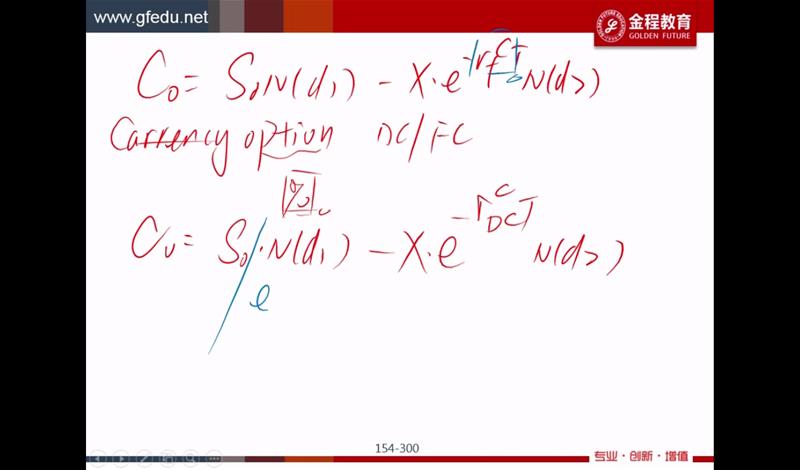 www.gfedu.net
金程教育
GOLDEN FUTURE
C₀ = S₀N(d₁) − X·e N(d₂)
Currency option DC/FC
C₀ = S₀·N(d₁) − X·e N(d₂)
e
154-300
专业·创新·增值